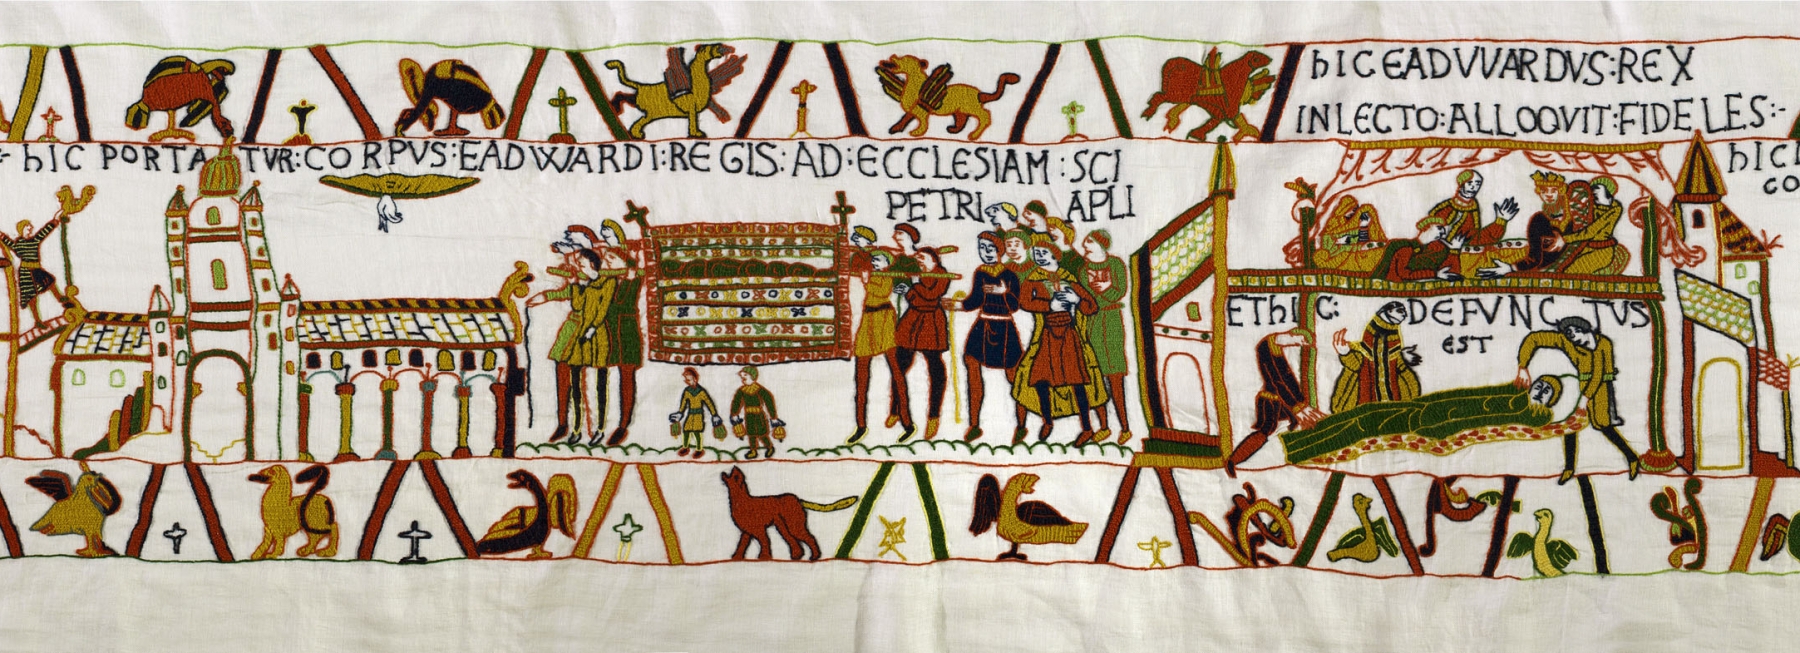 :- hIC PORTATVR: CORPVS: EADWARDI: REGIS: AD: ECCLESIAM: SCI
PETRI APLI
hIC EADVVARDVS: REX
IN LECTO: ALLOQVIT: FIDELES:-
EThIC: DEFVNCTUS
EST
hIC
CO